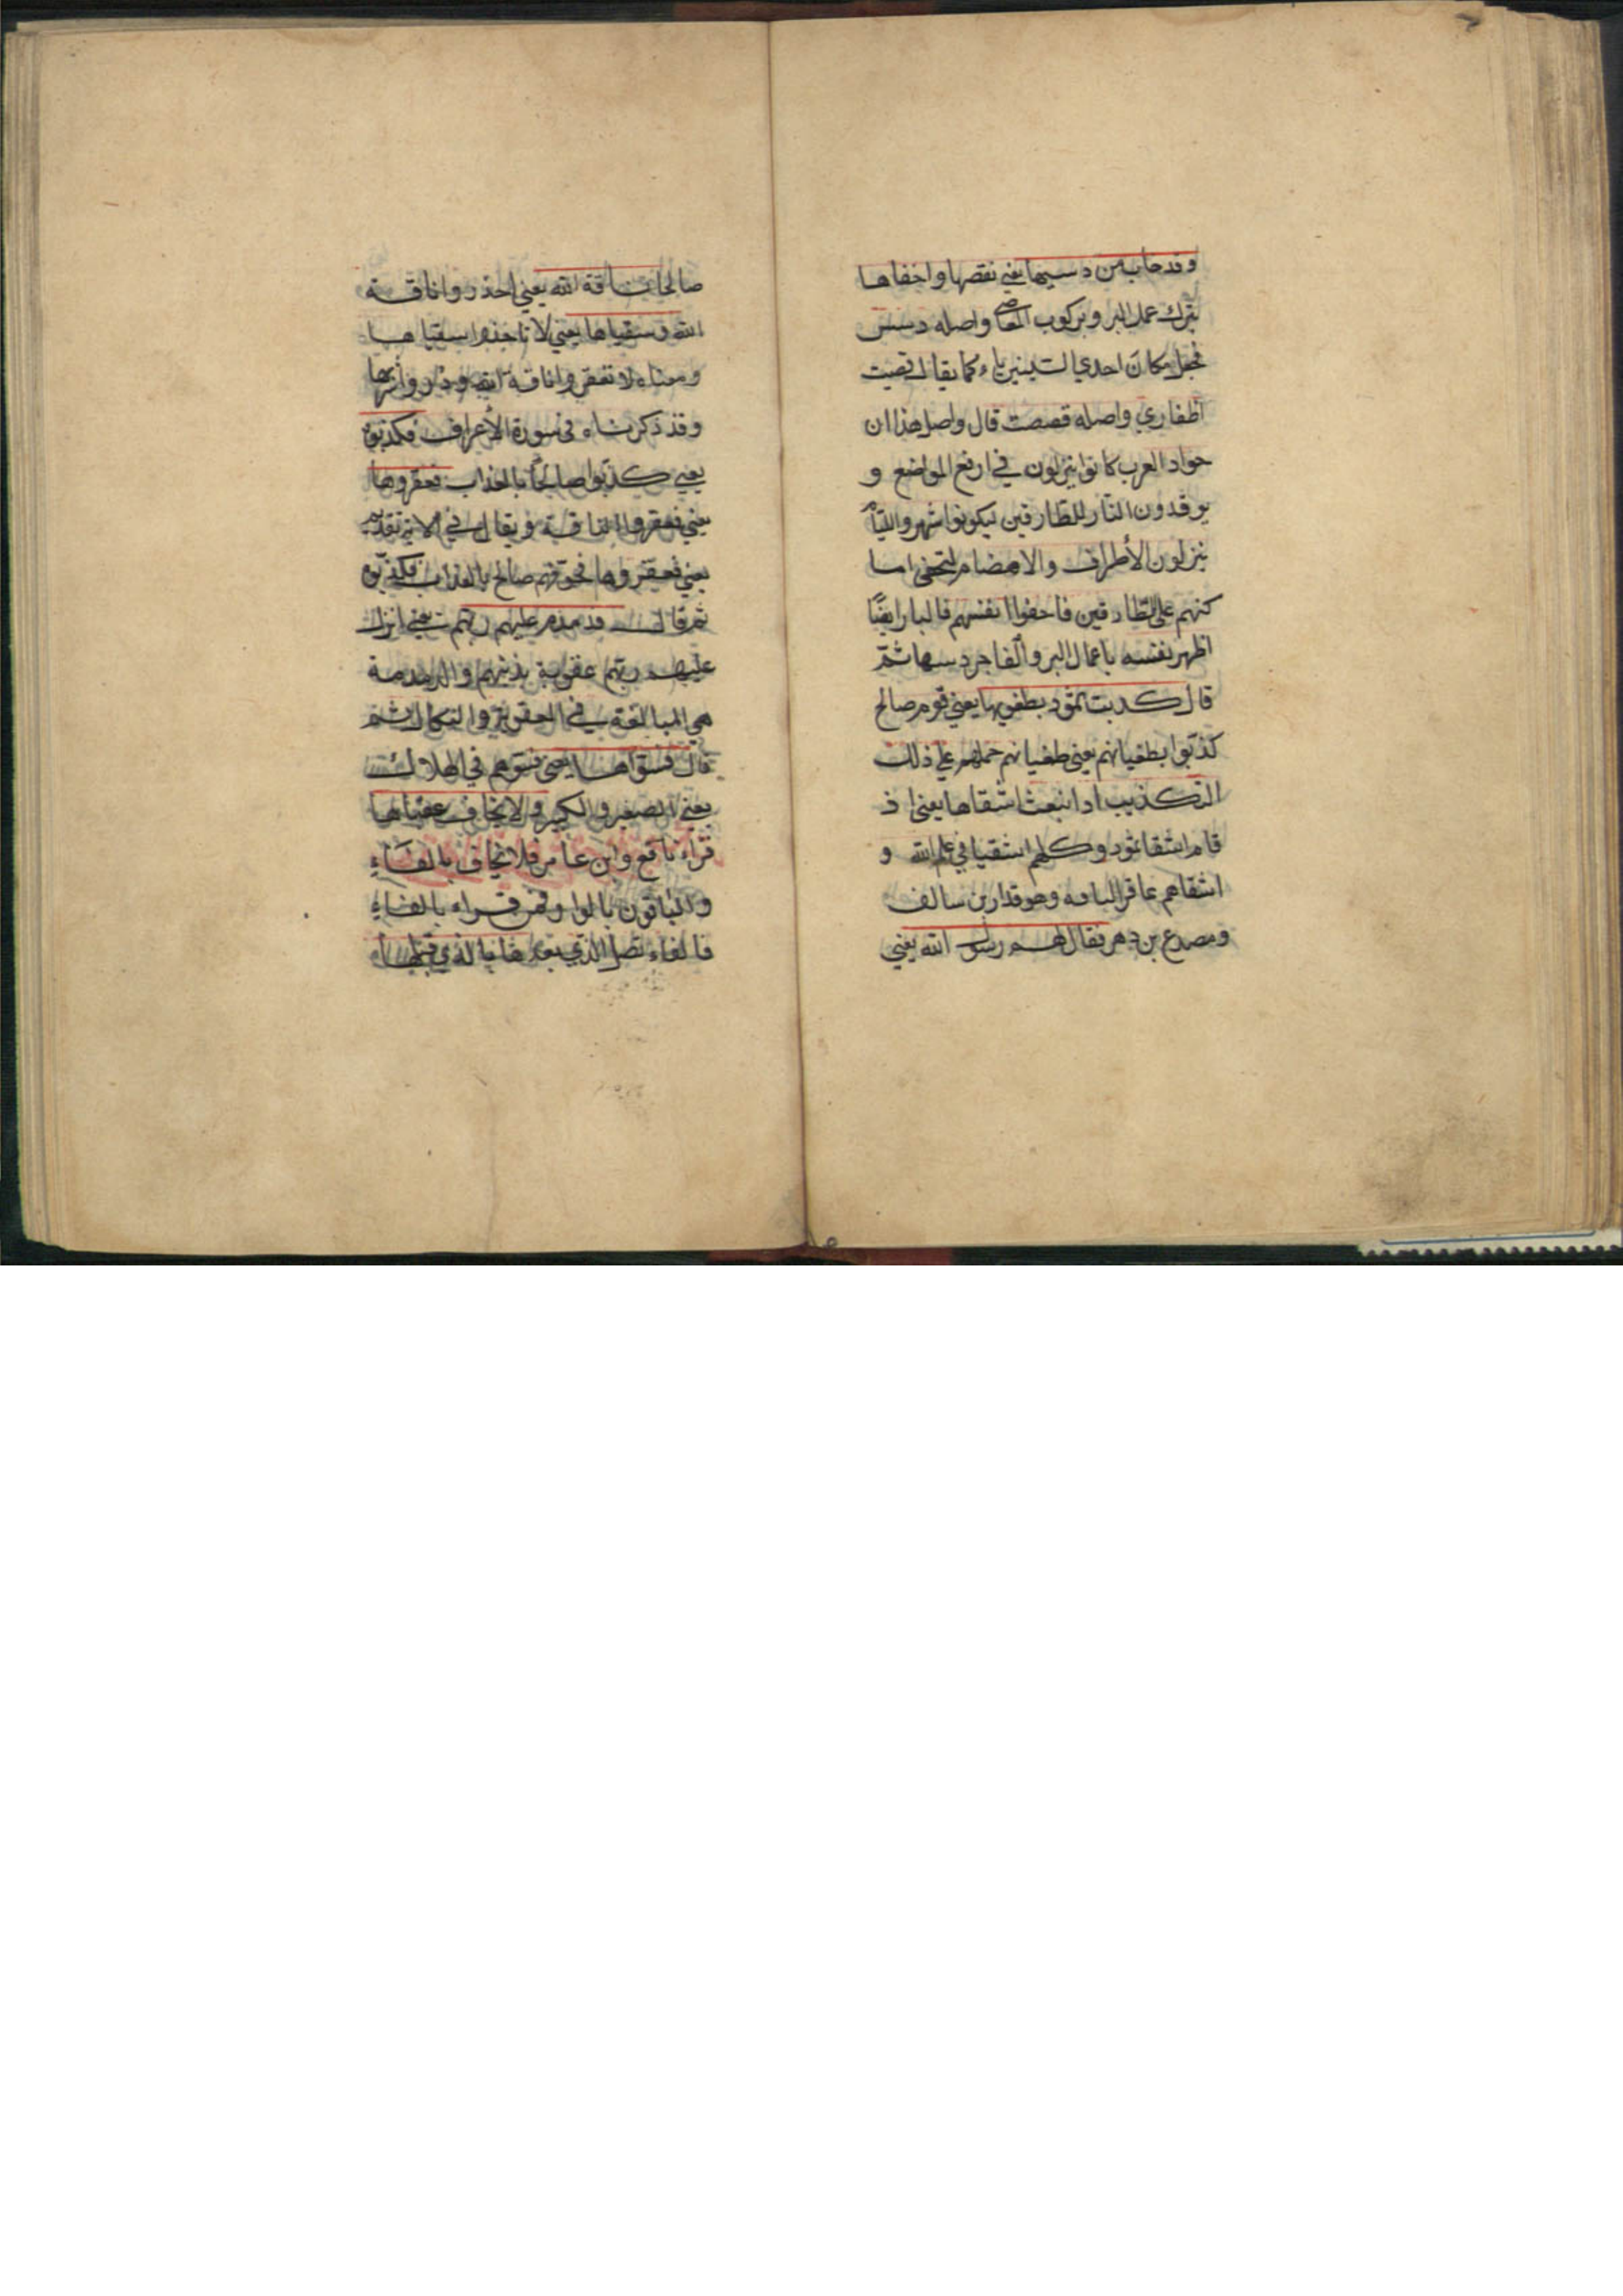 وقد خاب من دسيها يعني نقصها واخفاها
بترك عمل البر وبركوب المعاصي واصله دسس
فجعل مكان احدي السينين ياء كما يقال قصيت
اظفاري واصله قصصت قال واصل هذا ان
جواد العرب كانوا ينزلون في ارفع المواضع و
يوقدون النار للطارقين ليكونوا اشهر واللئام
ينزلون الأطراف والاهضام لتخفي اما
كنهم على الطارقين فاخفوا انفسهم فالبار ايضًا
اظهر نفسه باعمال البر والفاجر دسها ثمّ
قال كدبت ثمود بطغويها يعني قوم صالح
كذبوا بطغيانهم يعني طغيانهم حملهم علي ذلك
التكذيب اد انبعث اشقاها يعني اذ
قام اشقا ثمود وكلهم اشقيا في علم الله و
اشقاهم عاقر الناقه وهو قدار بن سالف
ومصدع بن دهر فقال لهم رسول الله يعني
صالحا ناقة الله يعني احذروا ناقة
الله وسقياها يعني لا تاخذوا سقياها
ومعناه لا تعقروا ناقة الله وذروا شربها
وقد ذكرناه في سورة الأعراف فكذبوه
يعني كذّبوا صالحًا بالعذاب فعقروها
يعني فعقروا الناقة ويقال في الاية تقديم
يعني فعقروها فخوفهم صالح بالعذاب فكذبوه
ثم قال فدمدم عليهم ربهم يعني انزل
عليهم ربهم عقوبة بذنبهم والدمدمة
هي المبالغة في العقوبة والنكال ثم
قال فسوّاها يعني فسوّهم في الهلاك
يعني الصغير والكبير ولا يخاف عقباها
قراء نافع وابن عامر فلا يخاف بالفاءِ
والباقون بالواو فمن قراء بالفاءِ
فالفاء تصل الذي بعدها بالذي قبلها